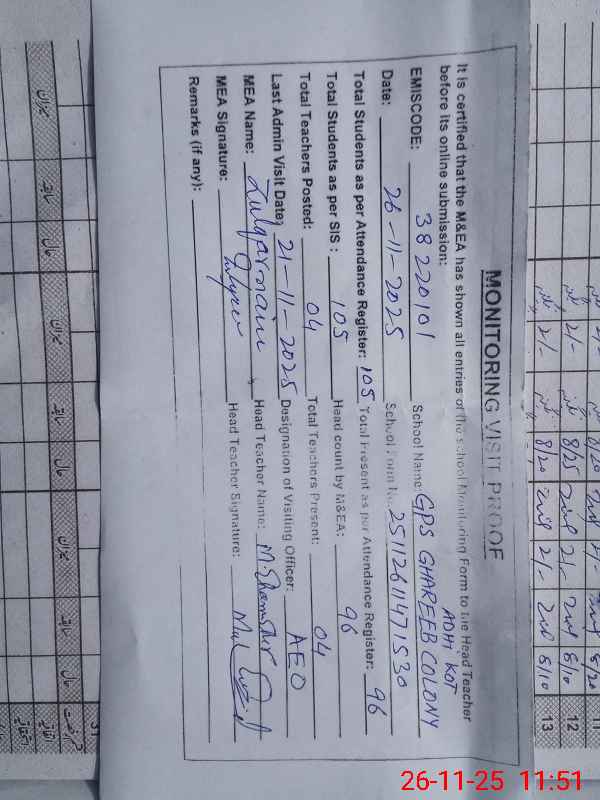 MONITORING VISIT PROOF
It is certified that the M&EA has shown all entries of the School Monitoring Form to the Head Teacher
before its online submission:
EMISCODE: 38220101 School Name: GPS GHAREEB COLONY
ADHI KOT
Date: 26-11-2025 School Form No. 2511261147 1530
Total Students as per Attendance Register: 105 Total Present as per Attendance Register: 96
Total Students as per SIS: 105 Head count by M&EA: 96
Total Teachers Posted: 04 Total Teachers Present: 04
Last Admin Visit Date: 21-11-2025 Designation of Visiting Officer: AEO
MEA Name: Zulqarnain Head Teacher Name: M. Shamsher
MEA Signature: Head Teacher Signature:
Remarks (if any):
حال
سابقہ
میزان
حال
سابقہ
میزان
حال
سابقہ
میزان
31
11
12
13
8/20
2/-
8/25
2/-
8/10
8/20
2/-
8/10
26-11-25 11:51